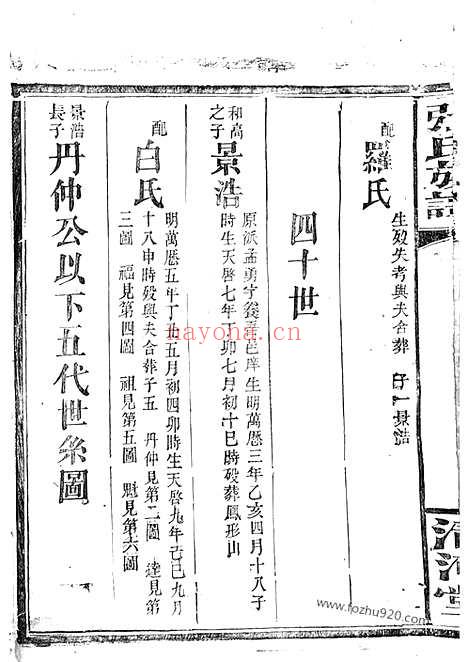 張氏族譜
清河堂
配羅氏
生歿失考與夫合葬 子一景浩
四十世
和高之子景浩
原派孟勇字 邑庠生明萬曆三年乙亥四月十八子
時生天啓七年丁卯七月初十巳時歿葬鳳形山
配白氏
明萬曆五年丁丑五月初四卯時生天啓九年己巳九月
十八申時歿與夫合葬子五 丹仲見第二圖 達見第
三圖 福見第四圖 祖見第五圖 魁見第六圖
景浩長子丹仲公以下五代世系圖
nayona.cn
www.fozhu920.com